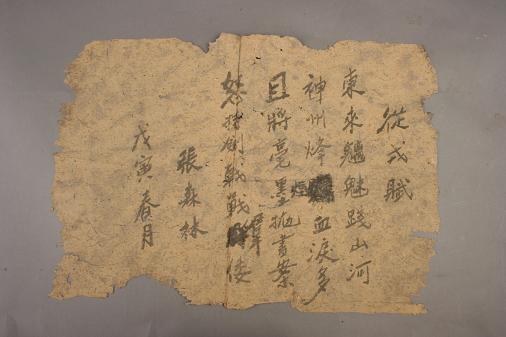 從戎賦
東來魑魅踐山河
神州烽煙血淚多
且將毫墨拋書案
怒揮劍戟戰倭
張森林
戊寅春月